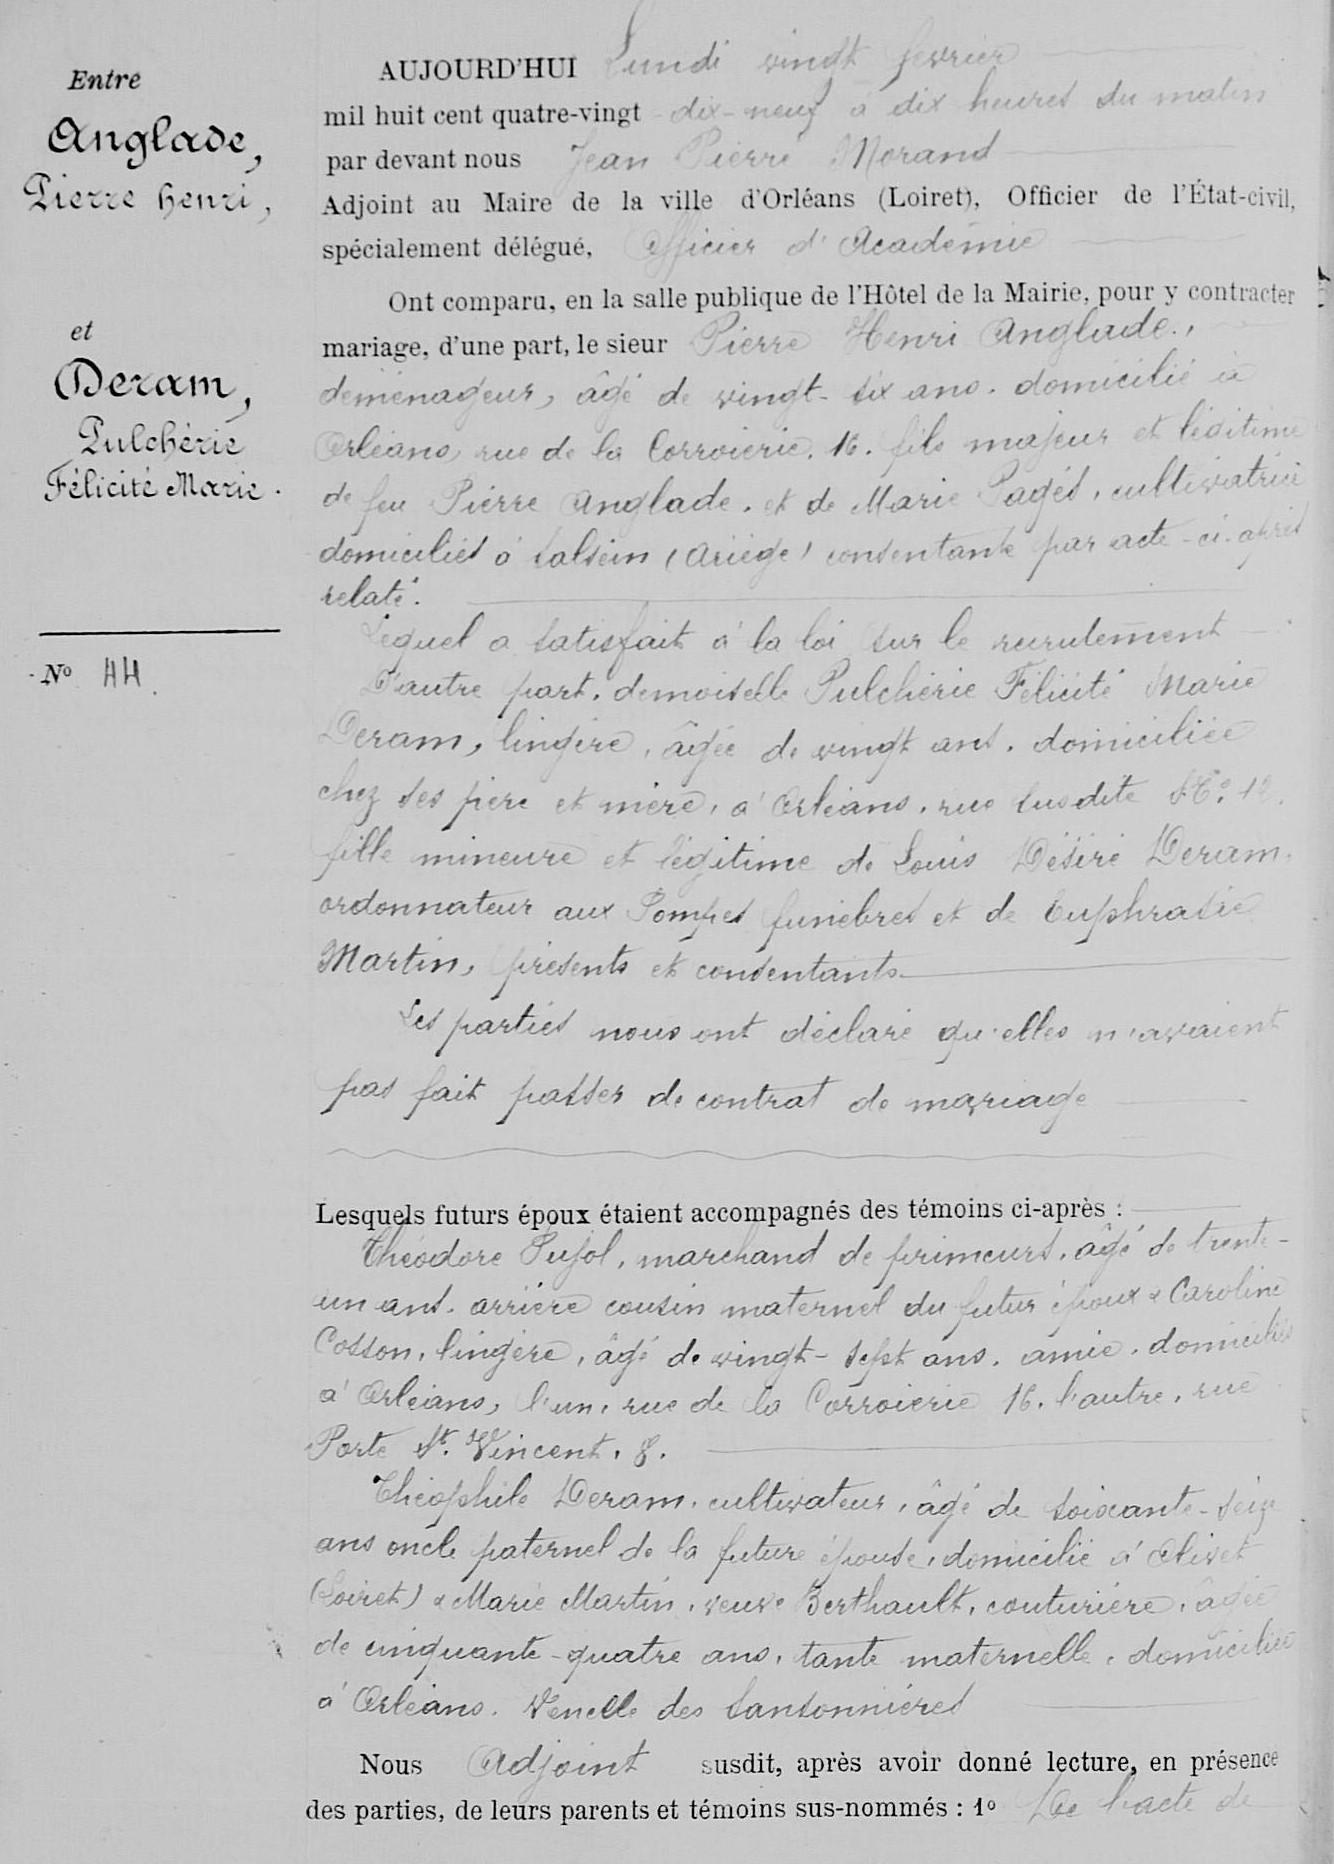 Entre
Anglade,
Pierre Henri,
et
Deram,
Pulchérie
Félicité Marie.
N° 44.
AUJOURD'HUI Lundi vingt février
mil huit cent quatre-vingt dix-neuf à dix heures du matin
par devant nous Jean Pierre Morand
Adjoint au Maire de la ville d'Orléans (Loiret), Officier de l'État-civil,
spécialement délégué, Officier d'Académie
Ont comparu, en la salle publique de l'Hôtel de la Mairie, pour y contracter
mariage, d'une part, le sieur Pierre Henri Anglade,
déménageur, âgé de vingt-six ans. domicilié à
Orléans, rue de la Corroierie. 16. fils majeur et légitime
de feu Pierre Anglade. et de Marie Pagès, cultivatrice
domiciliés à Salsein (Ariège) consentante par acte ci-après
relaté.
Lequel a satisfait à la loi sur le recrutement
D'autre part, demoiselle Pulchérie Félicité Marie
Deram, lingère, âgée de vingt ans, domiciliée
chez ses père et mère, à Orléans, rue susdite N°. 12.
fille mineure et légitime de Louis Désiré Deram,
ordonnateur aux Pompes funèbres et de Euphrasie
Martin, présents et consentants
Les parties nous ont déclaré qu'elles n'avaient
pas fait passer de contrat de mariage
Lesquels futurs époux étaient accompagnés des témoins ci-après :
Théodore Pujol, marchand de primeurs, âgé de trente-
un ans. arrière cousin maternel du futur époux & Caroline
Cosson, lingère, âgé de vingt-sept ans. amie. domiciliés
à Orléans, l'un, rue de la Corroierie 16. l'autre, rue
Porte St. Vincent, 8.
Théophile Deram, cultivateur, âgé de soixante-seize
ans oncle paternel de la future épouse, domicilié à Olivet
(Loiret) & Marie Martin, veuve Berthault, couturière, âgée
de cinquante-quatre ans, tante maternelle, domiciliée
à Orléans. Venelle des Sansonnières
Nous Adjoint susdit, après avoir donné lecture, en présence
des parties, de leurs parents et témoins sus-nommés : 1° De l'acte de